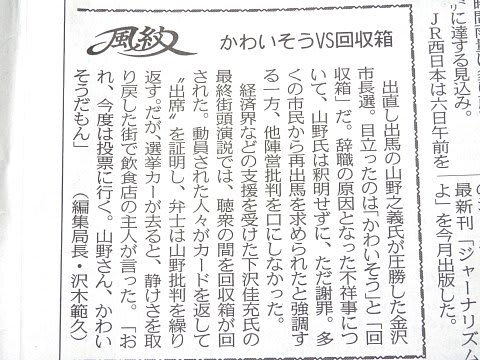 に達する見込み。
ＪＲ西日本は六日午前を
最新刊「ジャーナリズム
よ」を今月出版した。
風紋
かわいそうVS回収箱
出直し出馬の山野之義氏が圧勝した金沢
市長選。目立ったのは「かわいそう」と「回
収箱」だ。辞職の原因となった不祥事につ
いて、山野氏は釈明せずに、ただ謝罪。多
くの市民から再出馬を求められたと強調す
る一方、他陣営批判を口にしなかった。
経済界などの支援を受けた下沢佳充氏の
最終街頭演説では、聴衆の間を回収箱が回
された。動員された人々がカードを返して
〝出席〟を証明し、弁士は山野批判を繰り
返す。だが、選挙カーが去ると、静けさを取
り戻した街で飲食店の主人が言った。「お
れ、今度は投票に行く。山野さん、かわい
そうだもん」
（編集局長・沢木範久）